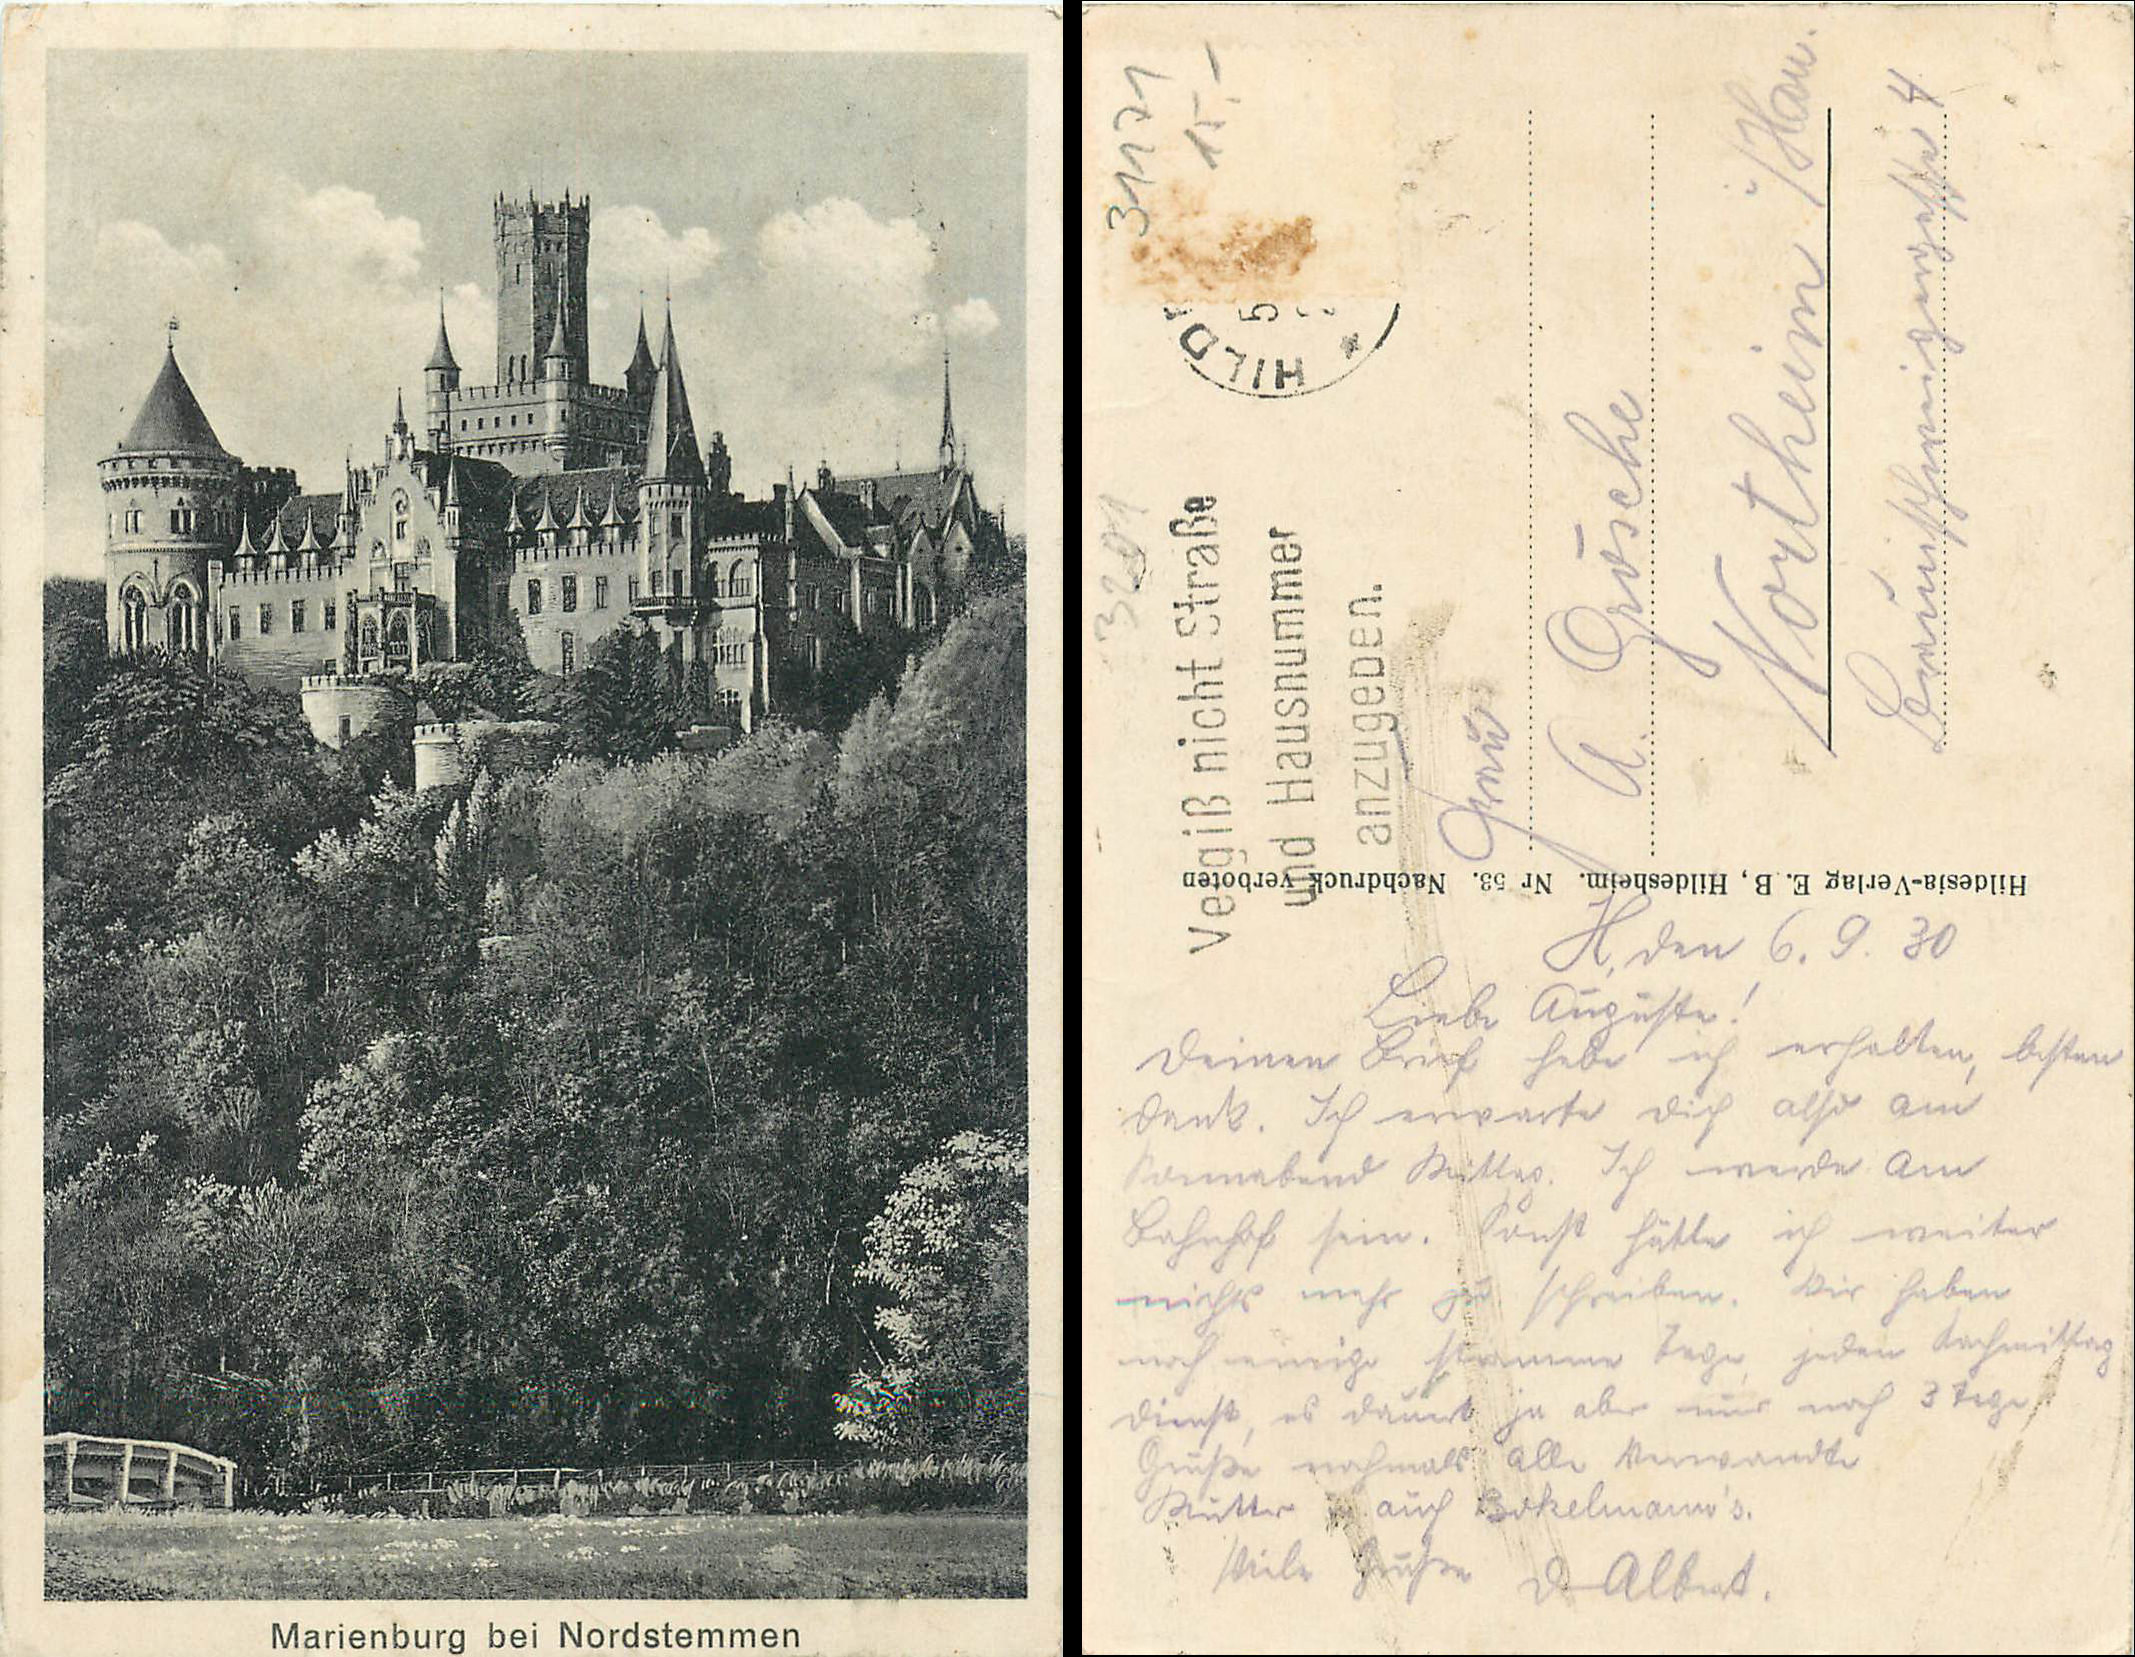 Marienburg bei Nordstemmen
3171
15,-
HILD
5
3201
Vergiß nicht Straße
und Hausnummer
anzugeben.
Frau
A. Grösche
Northeim i/Han.
Braunschweigerstraße 4
Hildesia-Verlag E. B., Hildesheim. Nr 53. Nachdruck verboten
H, den 6. 9. 30
Liebe Auguste!
Deinen Brief habe ich erhalten, besten
Dank. Ich erwarte Dich also am
Sonnabend Mittag. Ich werde am
Bahnhof sein. Sonst hätte ich weiter
nichts mehr zu schreiben. Wir haben
noch einige stramme Tage, jeden Nachmittag
Dienst, es dauert ja aber nur noch 3 Tage
Grüße nochmals alle Verwandte
Mutter auch Bokelmann's.
Viele Grüße D. Albert.